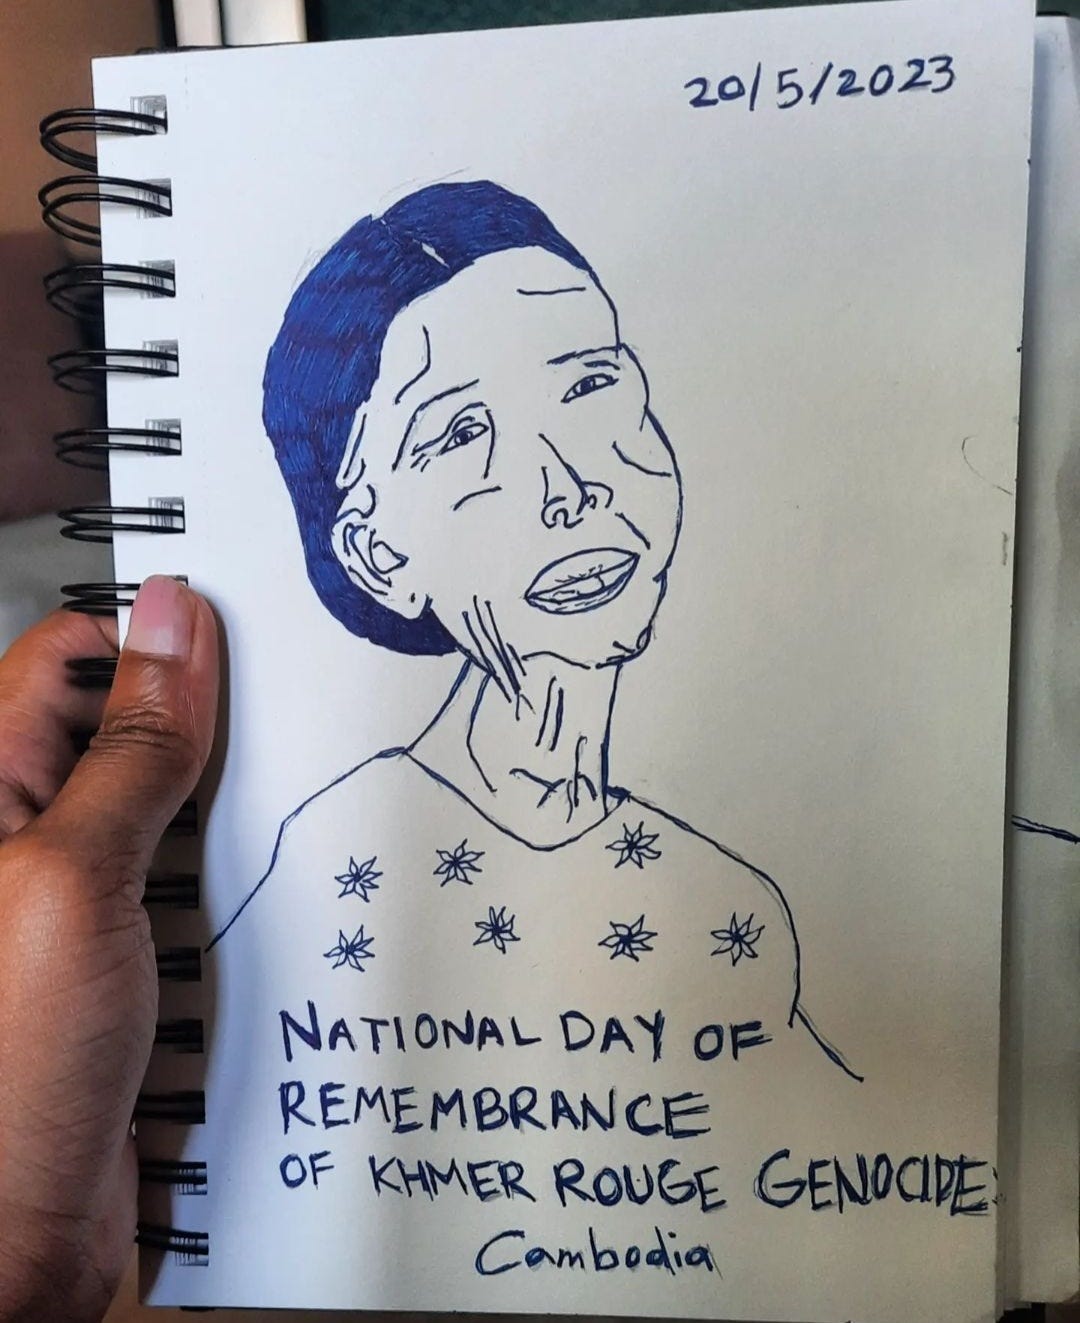 20/5/2023
NATIONAL DAY OF
REMEMBRANCE
OF KHMER ROUGE GENOCIDE
Cambodia